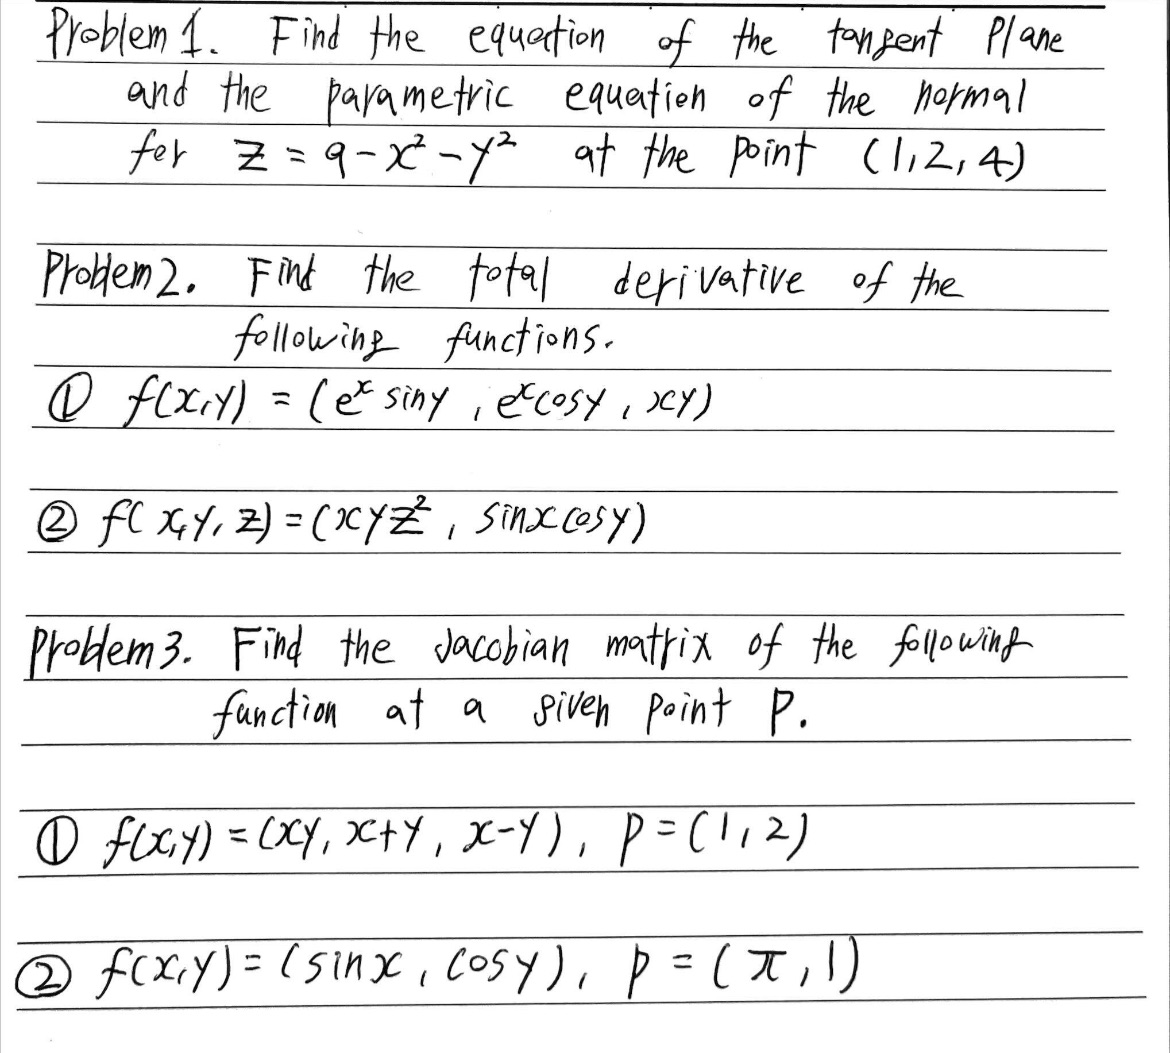 Problem 1. Find the equation of the tangent Plane
and the parametric equation of the normal
for z = 9-x²-y² at the point (1,2,4)
Problem 2. Find the total derivative of the
following functions.
① f(x,y) = (eˣ siny , eˣcosy , xy)
② f(x,y,z) = (xyz², sinxcosy)
Problem 3. Find the Jacobian matrix of the following
function at a given point P.
① f(x,y) = (xy, x+y, x-y), p=(1,2)
② f(x,y) = (sinx, cosy), p = (π,1)